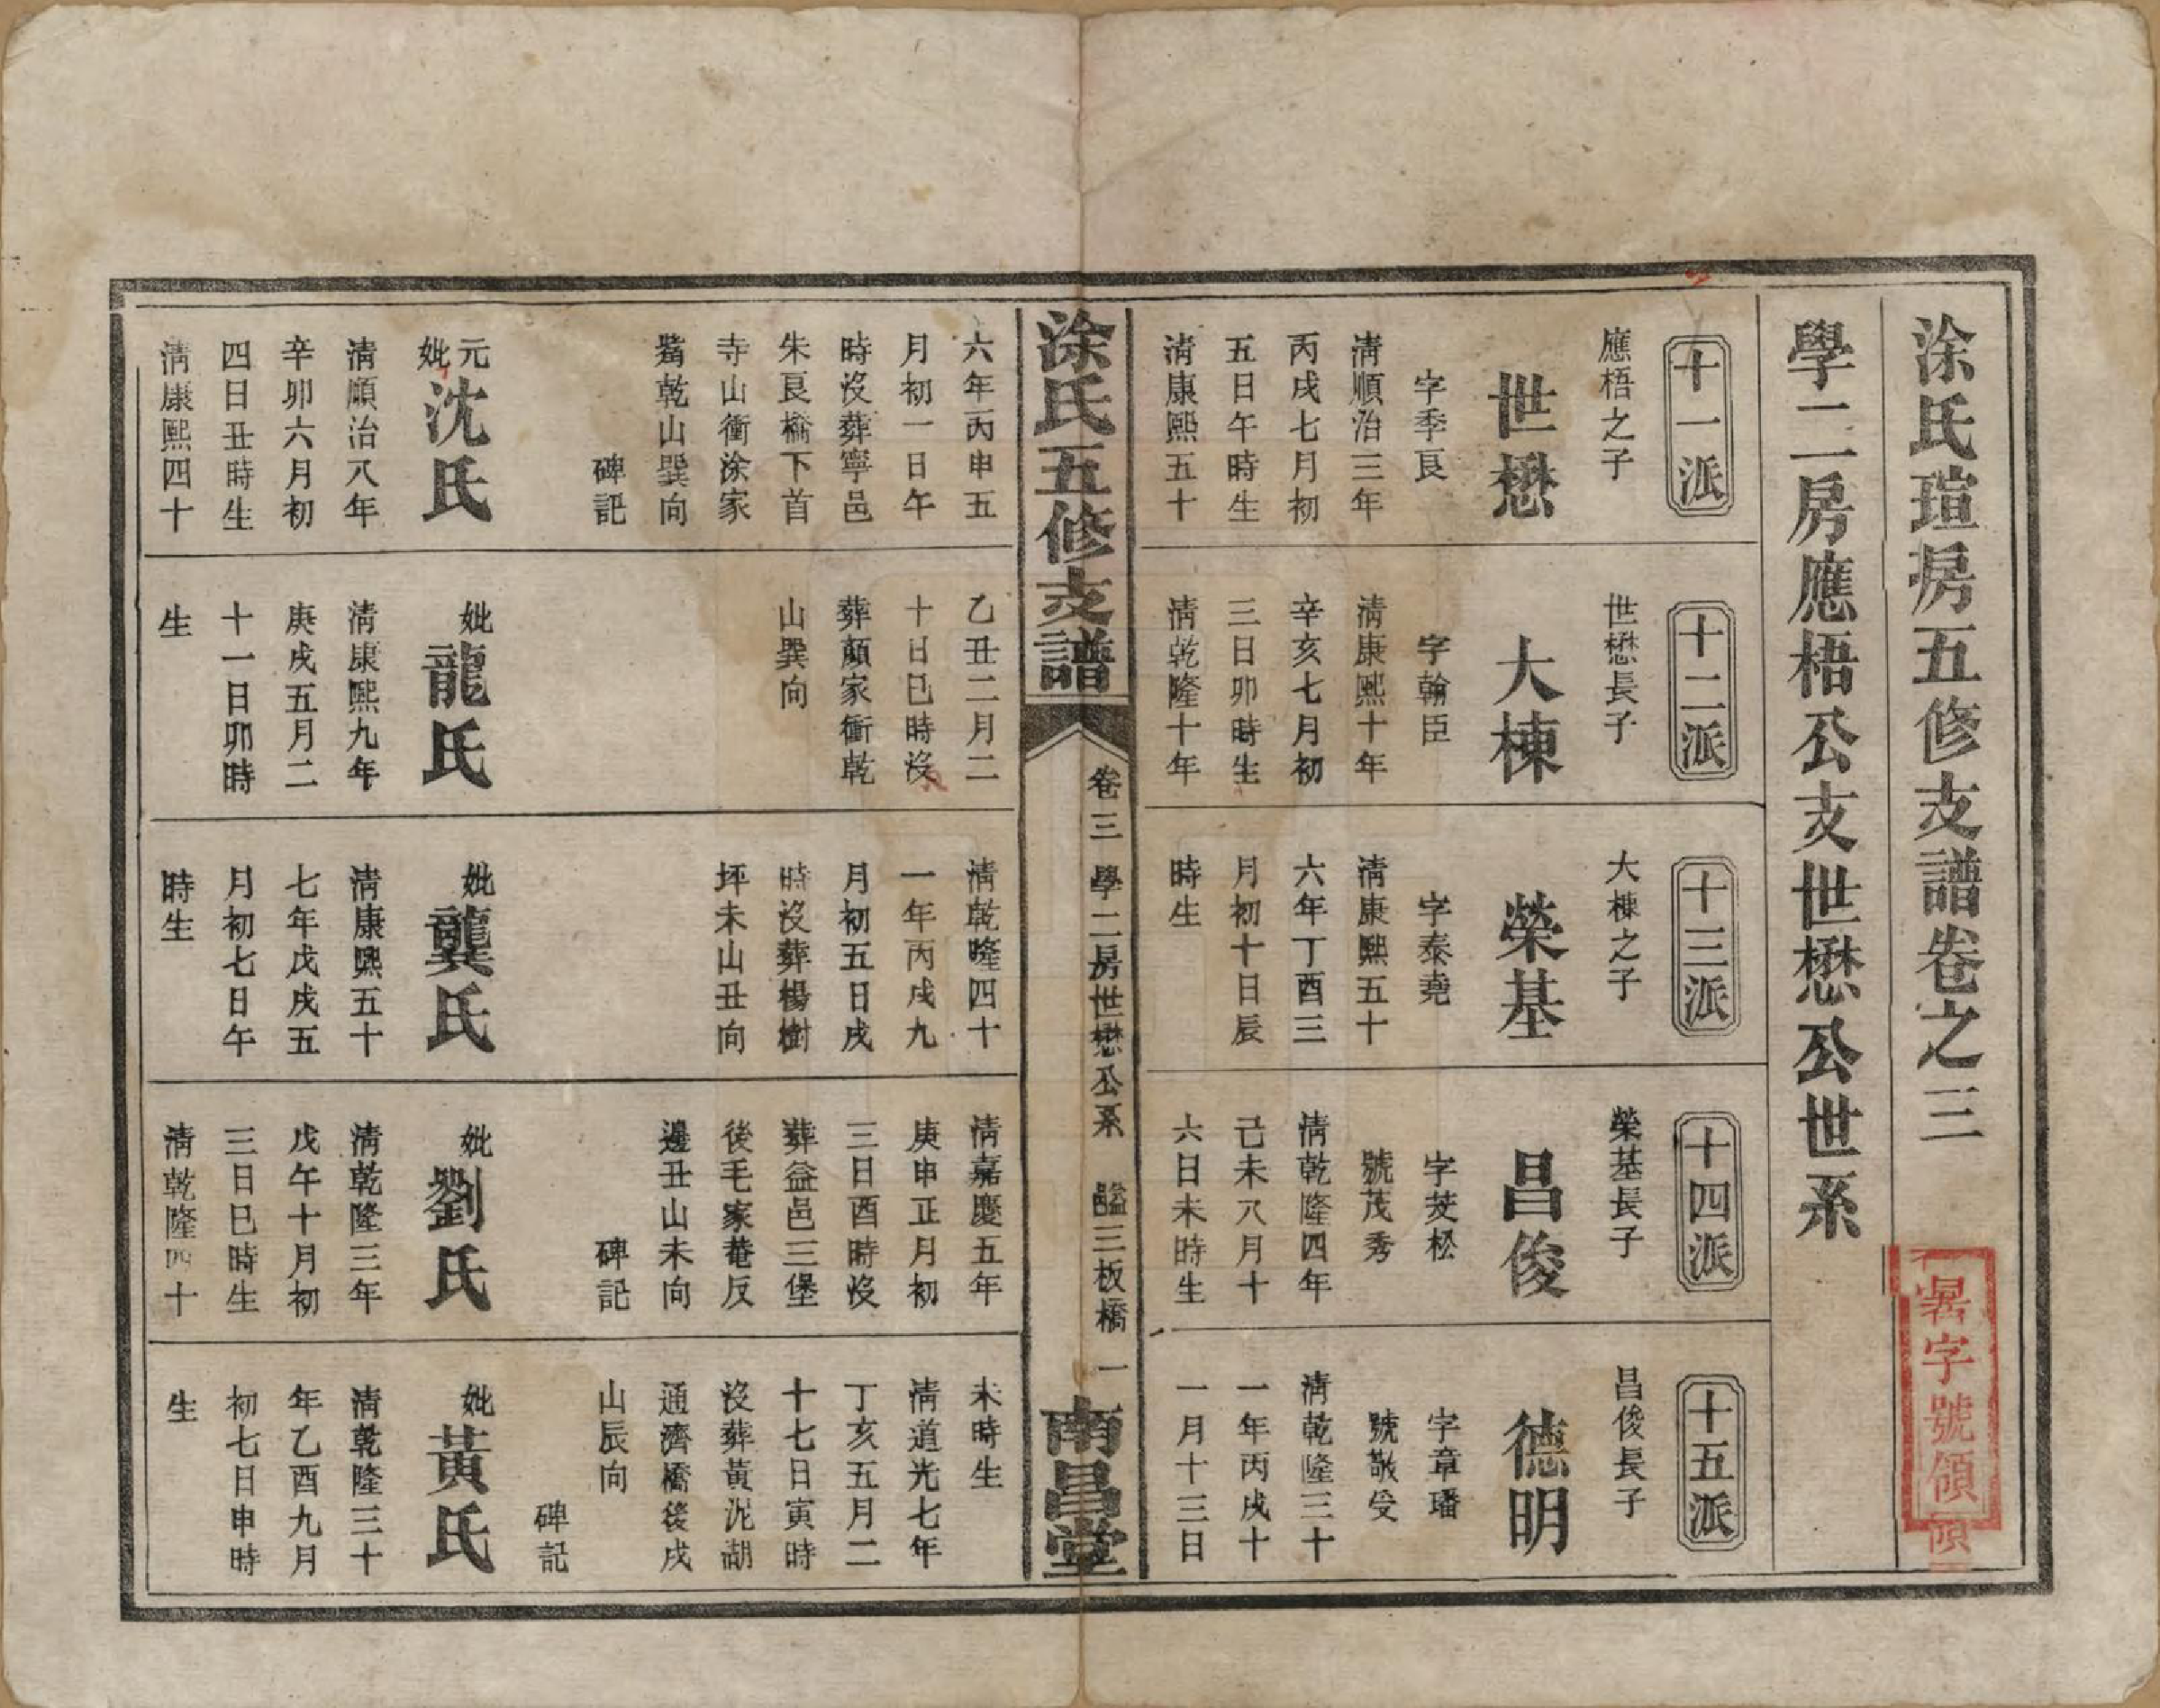 涂氏瑄房五修支譜卷之三
學二房應梧公支世懋公世系
十一派
應梧之子
世懋
字季良
清順治三年
丙戌七月初
五日午時生
清康熙五十
十二派
世懋長子
大棟
字翰臣
清康熙十年
辛亥七月初
三日卯時生
清乾隆十年
十三派
大棟之子
榮基
字泰堯
清康熙五十
六年丁酉三
月初十日辰
時生
十四派
榮基長子
昌俊
字茭松
號茂秀
清乾隆四年
己未八月十
六日未時生
十五派
昌俊長子
德明
字章璠
號敬受
清乾隆三十
一年丙戌十
一月十三日
字號領
涂氏五修支譜
卷三 學二房世懋公系 三板橋 一
南昌堂
六年丙申五
月初一日午
時沒葬寧邑
朱良橋下首
寺山衝涂家
嘴乾山巽向
碑記
元妣沈氏
清順治八年
辛卯六月初
四日丑時生
清康熙四十
乙丑二月二
十日巳時沒
葬顏家衝乾
山巽向
妣龍氏
清康熙九年
庚戌五月二
十一日卯時
生
清乾隆四十
一年丙戌九
月初五日戌
時沒葬楊樹
坪未山丑向
妣龔氏
清康熙五十
七年戊戌五
月初七日午
時生
清嘉慶五年
庚申正月初
三日酉時沒
葬益邑三堡
後毛家菴反
邊丑山未向
碑記
妣劉氏
清乾隆三年
戊午十月初
三日巳時生
清乾隆四十
未時生
清道光七年
丁亥五月二
十七日寅時
沒葬黃泥湖
通濟橋後戌
山辰向
碑記
妣黃氏
清乾隆三十
年乙酉九月
初七日申時
生